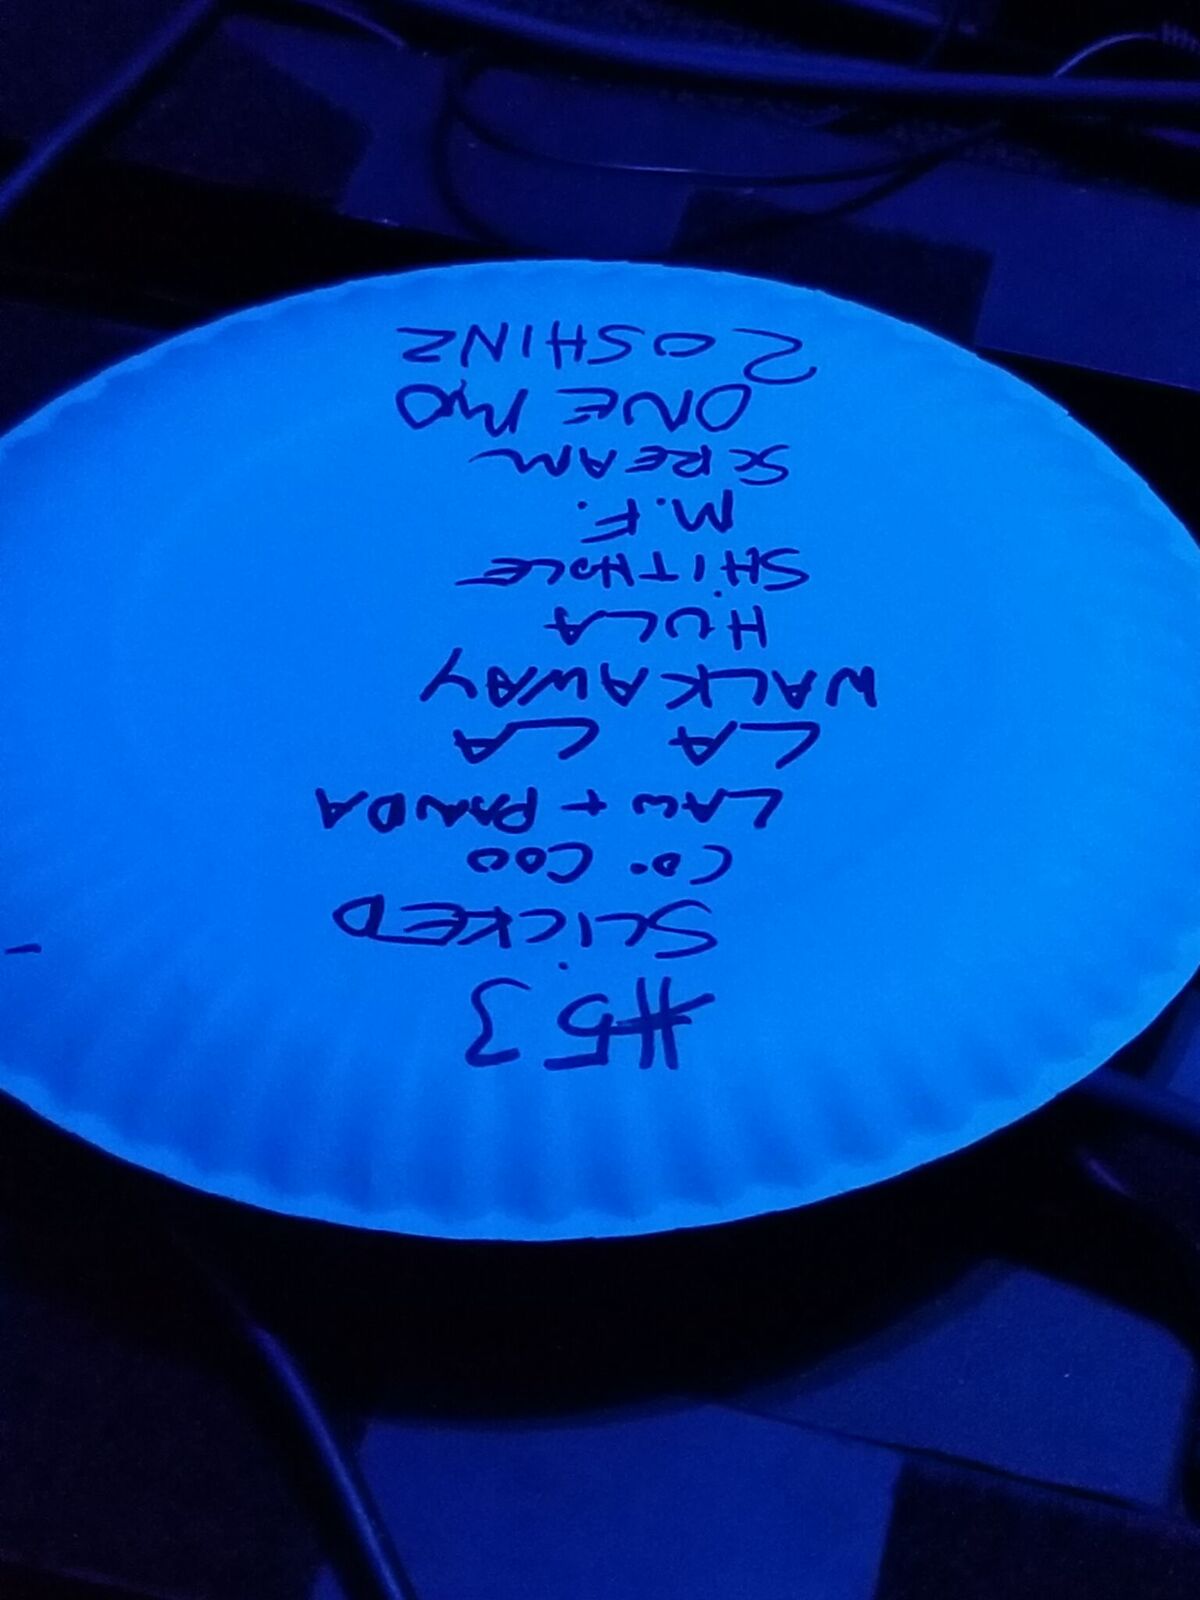 #53
SLICKED
CO. COO
LAW + PANDA
LA LA
WALKAWAY
HULA
SHITHOLE
M.F.
SCREAM
ONE MO
ZOSHINZ